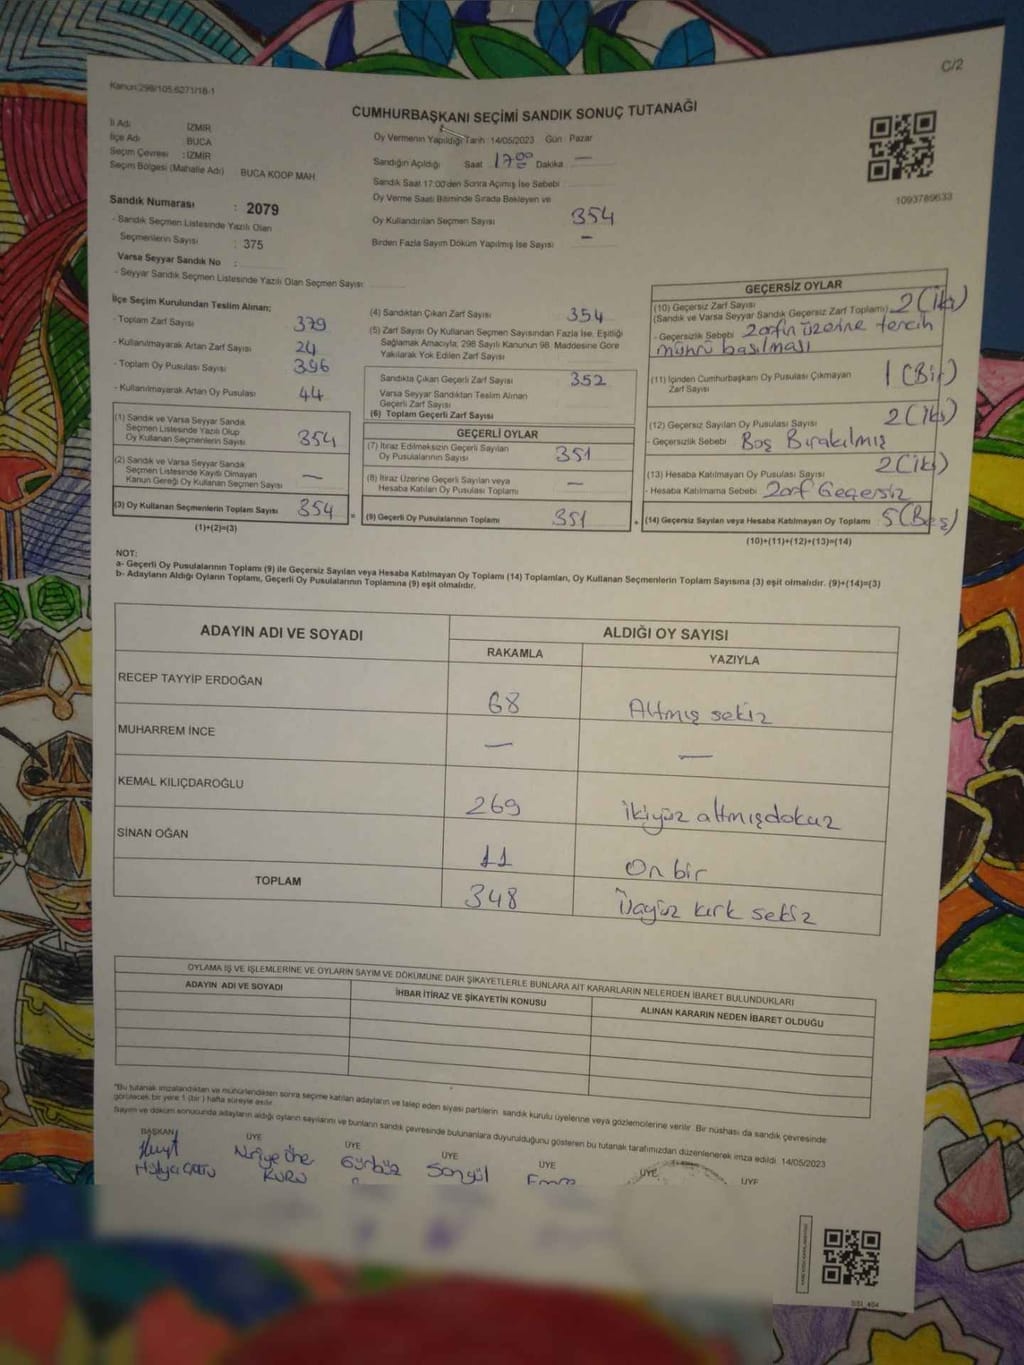 C/2
Kanun:298/105,6271/18-1
CUMHURBAŞKANI SEÇİMİ SANDIK SONUÇ TUTANAĞI
İl Adı : İZMİR
İlçe Adı BUCA
Seçim Çevresi : İZMİR
Seçim Bölgesi (Mahalle Adı) BUCA KOOP MAH.
Sandık Numarası : 2079
- Sandık Seçmen Listesinde Yazılı Olan
Seçmenlerin Sayısı : 375
Varsa Seyyar Sandık No :
- Seyyar Sandık Seçmen Listesinde Yazılı Olan Seçmen Sayısı
Oy Vermenin Yapıldığı Tarih :14/05/2023 Gün : Pazar
Sandığın Açıldığı Saat 17.00 Dakika —
Sandık Saat 17:00'den Sonra Açılmış İse Sebebi
Oy Verme Saati Bitiminde Sırada Bekleyen ve
Oy Kullandırılan Seçmen Sayısı 354
Birden Fazla Sayım Döküm Yapılmış İse Sayısı —
1093789633
İlçe Seçim Kurulundan Teslim Alınan;
- Toplam Zarf Sayısı 379
- Kullanılmayarak Artan Zarf Sayısı 24
- Toplam Oy Pusulası Sayısı 396
- Kullanılmayarak Artan Oy Pusulası 44
(1) Sandık ve Varsa Seyyar Sandık
Seçmen Listesinde Yazılı Olup
Oy Kullanan Seçmenlerin Sayısı 354
(2) Sandık ve Varsa Seyyar Sandık
Seçmen Listesinde Kayıtlı Olmayan
Kanun Gereği Oy Kullanan Seçmen Sayısı —
(3) Oy Kullanan Seçmenlerin Toplam Sayısı 354 =
(1)+(2)=(3)
(4) Sandıktan Çıkan Zarf Sayısı 354
(5) Zarf Sayısı Oy Kullanan Seçmen Sayısından Fazla İse, Eşitliği
Sağlamak Amacıyla; 298 Sayılı Kanunun 98. Maddesine Göre
Yakılarak Yok Edilen Zarf Sayısı
Sandıkta Çıkan Geçerli Zarf Sayısı 352
Varsa Seyyar Sandıktan Teslim Alınan
Geçerli Zarf Sayısı
(6) Toplam Geçerli Zarf Sayısı
GEÇERLİ OYLAR
(7) İtiraz Edilmeksizin Geçerli Sayılan
Oy Pusulalarının Sayısı 351
(8) İtiraz Üzerine Geçerli Sayılan veya
Hesaba Katılan Oy Pusulası Toplamı —
(9) Geçerli Oy Pusulalarının Toplamı 351 +
GEÇERSİZ OYLAR
(10) Geçersiz Zarf Sayısı
(Sandık ve Varsa Seyyar Sandık Geçersiz Zarf Toplamı) 2 (iki)
- Geçersizlik Sebebi Zarfın üzerine tercih
mührü basılması
(11) İçinden Cumhurbaşkanı Oy Pusulası Çıkmayan
Zarf Sayısı 1 (Bir)
(12) Geçersiz Sayılan Oy Pusulası Sayısı 2 (iki)
- Geçersizlik Sebebi Boş Bırakılmış
(13) Hesaba Katılmayan Oy Pusulası Sayısı 2 (iki)
- Hesaba Katılmama Sebebi Zarf Geçersiz
(14) Geçersiz Sayılan veya Hesaba Katılmayan Oy Toplamı 5 (Beş)
(10)+(11)+(12)+(13)=(14)
NOT:
a- Geçerli Oy Pusulalarının Toplamı (9) ile Geçersiz Sayılan veya Hesaba Katılmayan Oy Toplamı (14) Toplamları, Oy Kullanan Seçmenlerin Toplam Sayısına (3) eşit olmalıdır. (9)+(14)=(3)
b- Adayların Aldığı Oyların Toplamı, Geçerli Oy Pusulalarının Toplamına (9) eşit olmalıdır.
ADAYIN ADI VE SOYADI ALDIĞI OY SAYISI
RAKAMLA YAZIYLA
RECEP TAYYİP ERDOĞAN 68 Altmış sekiz
MUHARREM İNCE — —
KEMAL KILIÇDAROĞLU 269 ikiyüz altmışdokuz
SİNAN OĞAN 11 On bir
TOPLAM 348 Üçyüz kırk sekiz
OYLAMA İŞ VE İŞLEMLERİNE VE OYLARIN SAYIM VE DÖKÜMÜNE DAİR ŞİKAYETLERLE BUNLARA AİT KARARLARIN NELERDEN İBARET BULUNDUKLARI
ADAYIN ADI VE SOYADI İHBAR İTİRAZ VE ŞİKAYETİN KONUSU ALINAN KARARIN NEDEN İBARET OLDUĞU
"Bu tutanak imzalandıktan ve mühürlendikten sonra seçime katılan adayların ve talep eden siyasi partilerin sandık kurulu üyelerine veya gözlemcilerine verilir. Bir nüshası da sandık çevresinde
görülecek bir yere 1 (bir) hafta süreyle asılır.
Sayım ve döküm sonucunda adayların aldığı oyların sayılarını ve bunların sandık çevresinde bulunanlara duyurulduğunu gösteren bu tutanak tarafımızdan düzenlenerek imza edildi. 14/05/2023
BAŞKAN ÜYE ÜYE ÜYE ÜYE ÜYE ÜYE
Songül